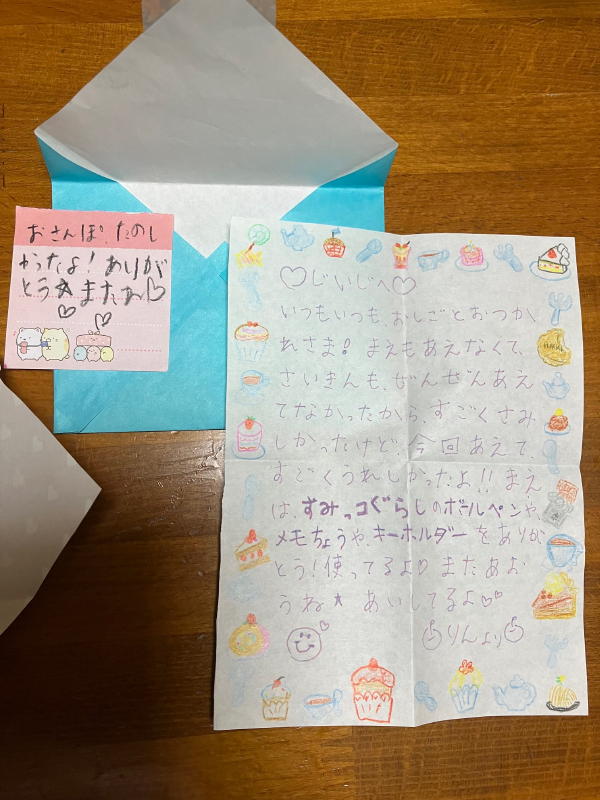 おさんぽ、たのし
かったよ！ありが
とう★またね♡
♡じいじへ♡
いつもいつも、おしごとおつか
れさま！まえもあえなくて、
さいきんも、ぜんぜんあえ
てなかったから、すごくさみ
しかったけど、今回あえて、
すごくうれしかったよ！！まえ
は、すみっコぐらしのボールペンや、
メモちょうや、キーホルダーをありが
とう！使ってるよ♡またあお
うね★あいしてるよ♡♡
りんより